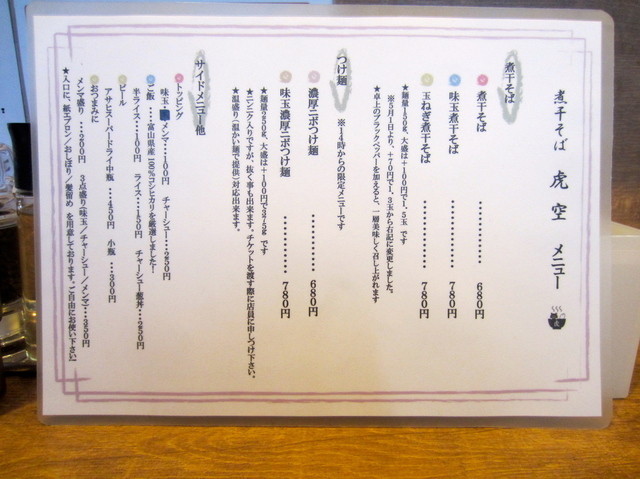 煮干そば 虎空 メニュー
煮干そば
煮干そば ………… 680円
味玉煮干そば ………… 780円
玉ねぎ煮干そば ………… 780円
★麺量150g、大盛は+100円で1,5玉 です
※5月1日より、+70円で1,3玉から右記に変更しました。
★卓上のブラックペッパーを加えると、一層美味しく召し上がれます
つけ麺 ※14時からの限定メニューです
濃厚ニボつけ麺 ………… 680円
味玉濃厚ニボつけ麺 ………… 780円
★麺量250g、大盛は+100円で375g です
★ニンニク入りですが、抜く事も出来ます。チケットを渡す際に店員に申しつけ下さい。
★温盛り(温かい麺で提供)対応出来ます。
サイドメニュー他
トッピング
味玉・メンマ・・・100円 チャーシュー・・・250円
ご飯 ・・・・富山県産100%コシヒカリを厳選しました!
半ライス・・・100円 ライス・・・150円 チャーシュー丼・・・250円
ビール
アサヒスーパードライ中瓶 ・・・450円 小瓶 ・・・300円
おつまみに
メンマ盛り ・・・200円 3点盛り(味玉/チャーシュー/メンマ)・・・350円
★入口に、紙エプロン/おしぼり/髪留め を用意しております。ご自由にお使い下さい!